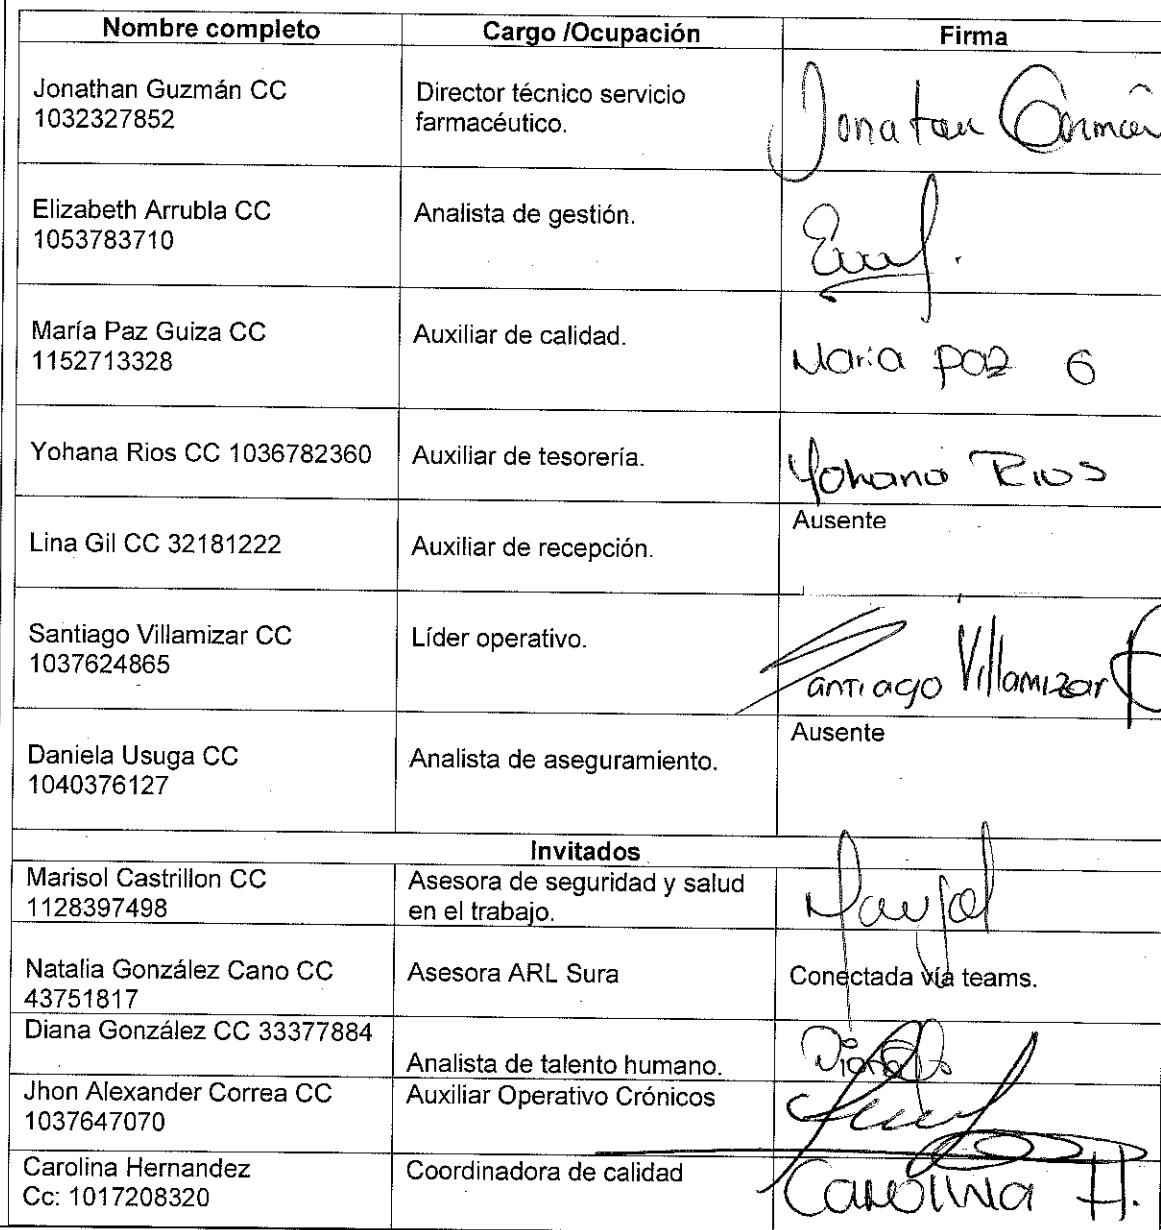 Nombre completo Cargo /Ocupación Firma
Jonathan Guzmán CC
1032327852
Director técnico servicio
farmacéutico.
Jonatan Guzmán
Elizabeth Arrubla CC
1053783710
Analista de gestión.
María Paz Guiza CC
1152713328
Auxiliar de calidad.
Maria paz G
Yohana Rios CC 1036782360
Auxiliar de tesorería.
Yohana Rios
Lina Gil CC 32181222
Auxiliar de recepción.
Ausente
Santiago Villamizar CC
1037624865
Líder operativo.
Santiago Villamizar
Daniela Usuga CC
1040376127
Analista de aseguramiento.
Ausente
Invitados
Marisol Castrillon CC
1128397498
Asesora de seguridad y salud
en el trabajo.
Natalia González Cano CC
43751817
Asesora ARL Sura
Conectada vía teams.
Diana González CC 33377884
Analista de talento humano.
Jhon Alexander Correa CC
1037647070
Auxiliar Operativo Crónicos
Carolina Hernandez
Cc: 1017208320
Coordinadora de calidad
Carolina H.